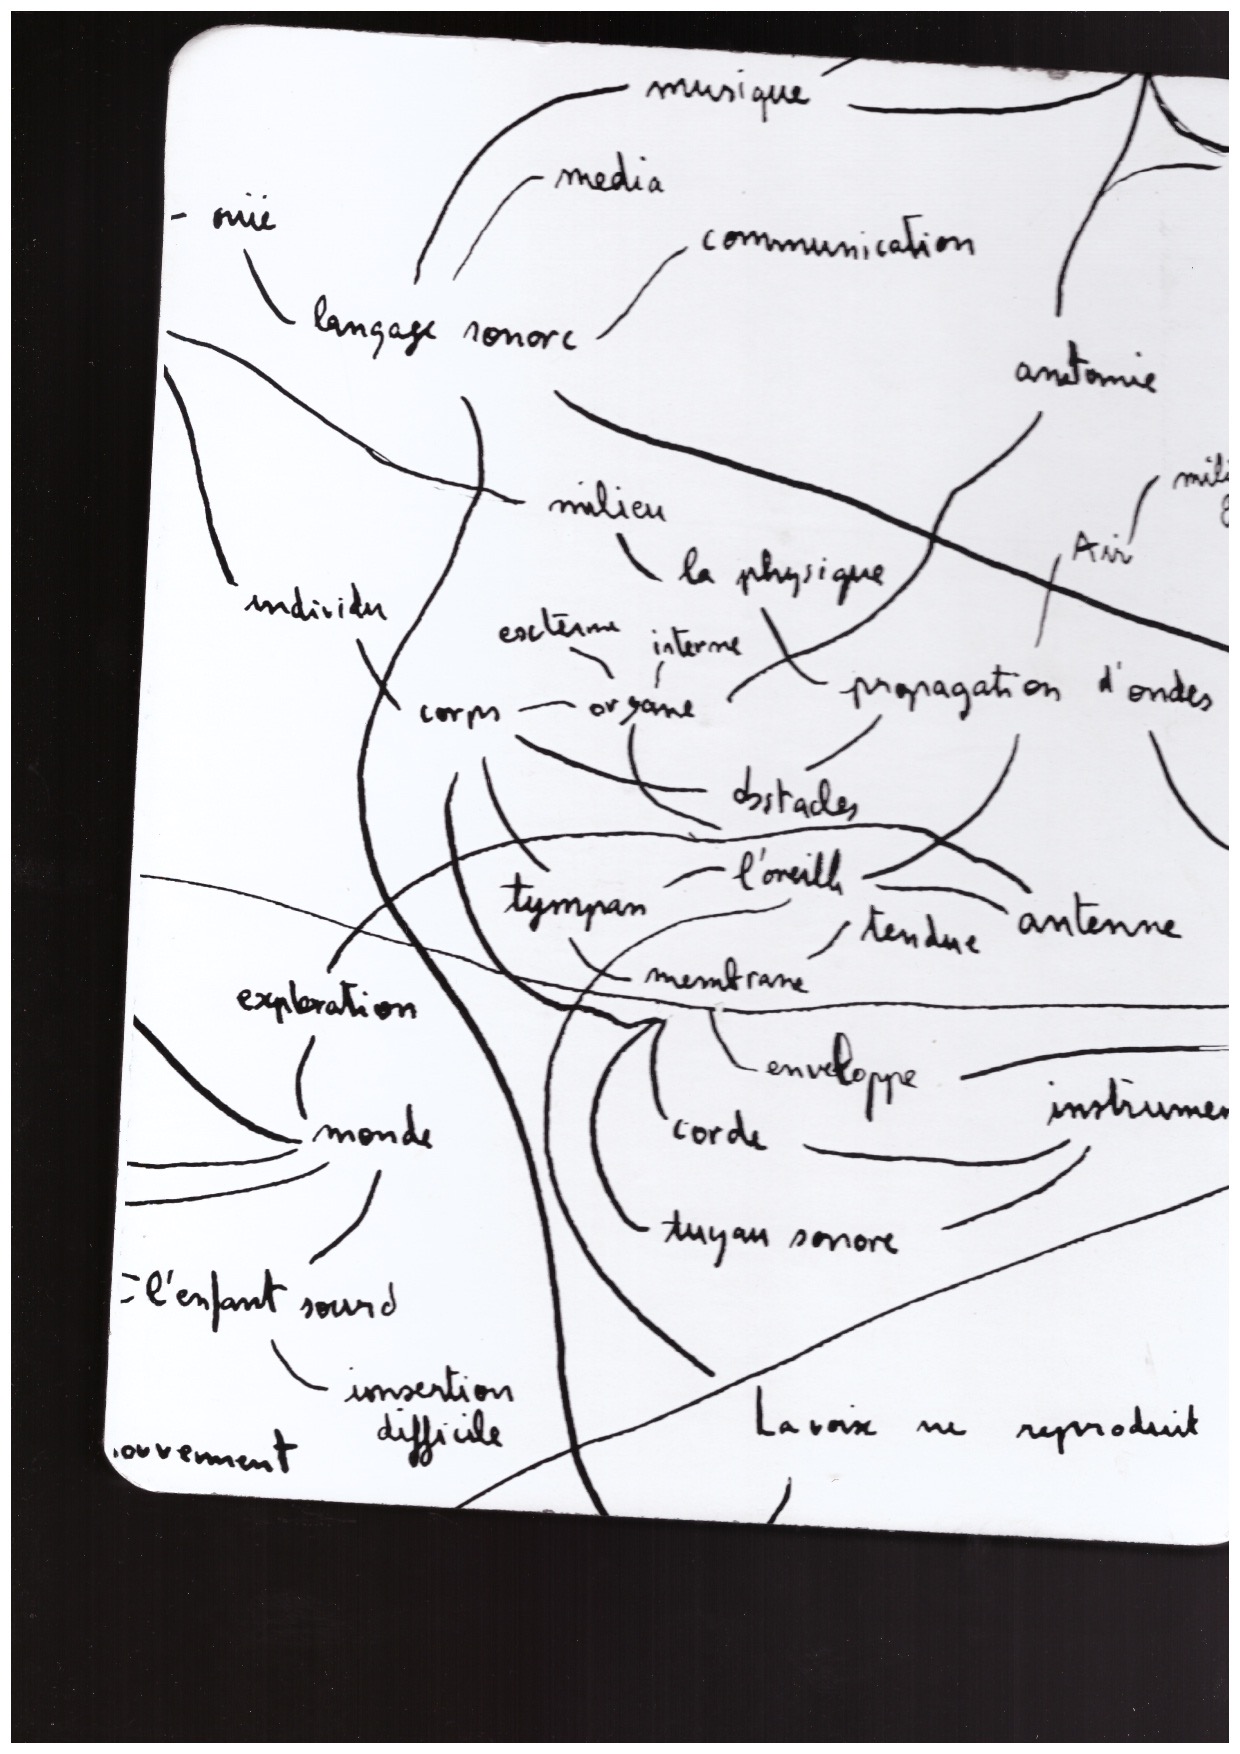 musique
media
ouïe
communication
langage sonore
anatomie
milieu
Air
la physique
individu
externe
interne
propagation d'ondes
corps
organe
obstacles
l'oreille
tympan
tendue
antenne
membrane
exploration
enveloppe
instrumen
corde
monde
tuyau sonore
l'enfant sourd
insertion
difficile
La voix ne reproduit
ouvement